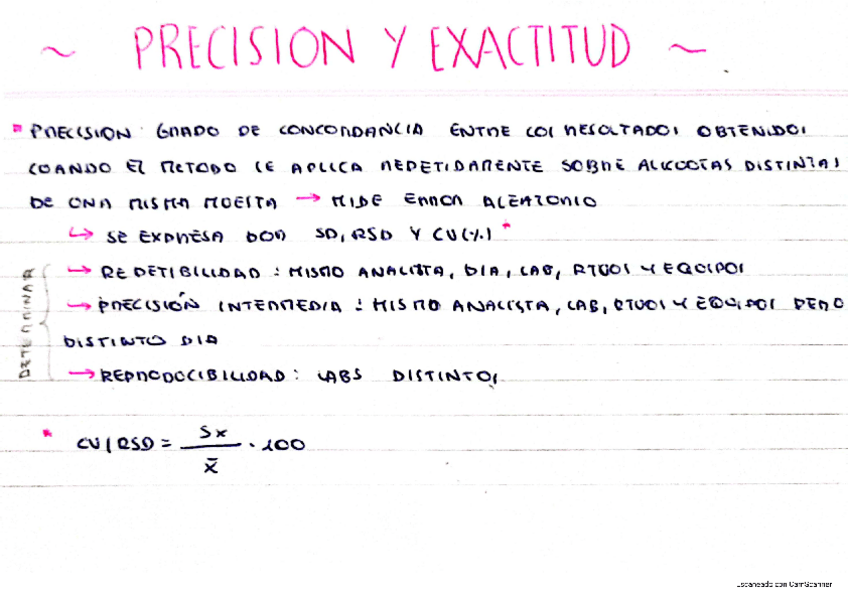 ~ PRECISION Y EXACTITUD ~
PRECISION: GRADO DE CONCORDANCIA ENTRE LOS RESULTADOS OBTENIDOS
CUANDO EL METODO SE APLICA REPETIDAMENTE SOBRE ALICUOTAS DISTINTAS
DE UNA MISMA MUESTA → MIDE ERROR ALEATORIO
↳ SE EXPRESA POR SD, RSD Y CV(%) *
DETERMINAR
→ REPETIBILIDAD: MISMO ANALISTA, DIA, LAB, RTVOS Y EQUIPOS
→ PRECISIÓN INTERMEDIA: MISMO ANALISTA, LAB, RTVOS Y EQUIPOS PERO
DISTINTO DIA
→ REPRODUCIBILIDAD: LABS DISTINTOS
* CV/RSD = Sx / x̄ · 100
Escaneado con CamScanner